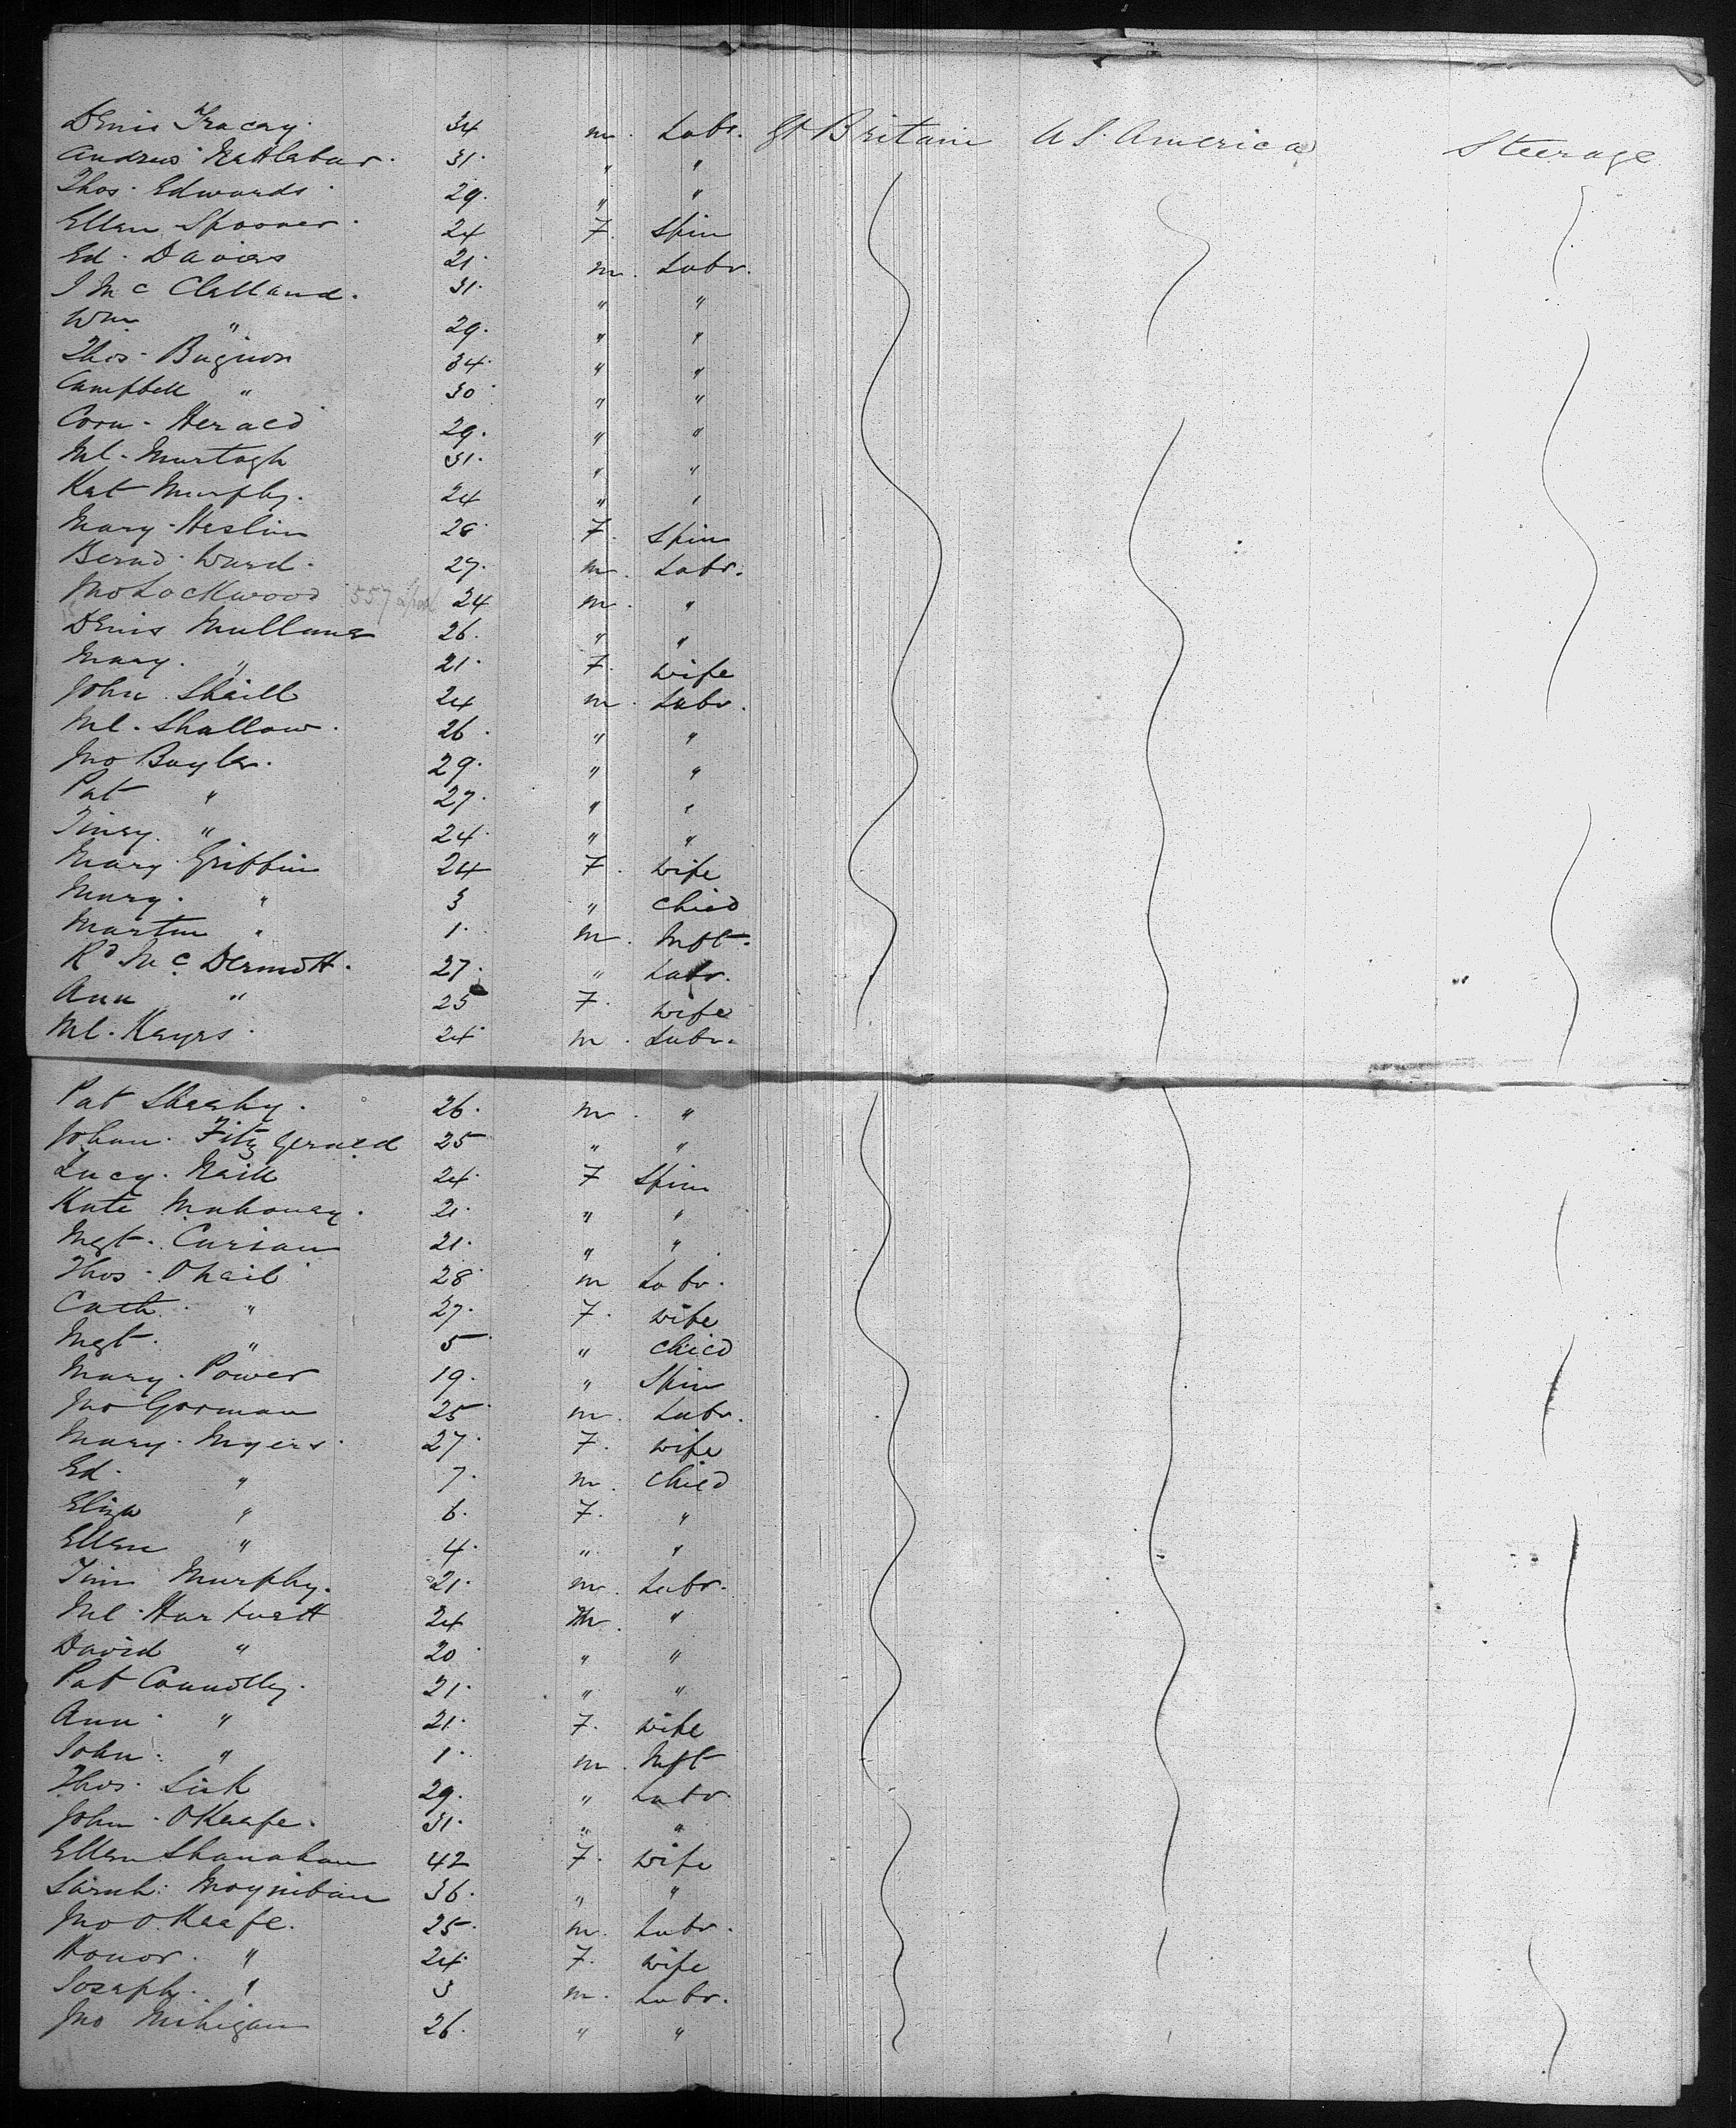 Denis Tracey. 34 m. Labr. Gt Britain U S. America Steerage
Andrew 31. " "
Thos. Edwards. 29. " "
Ellen Spooner. 24 F. Spin
Ed. Davies 21. m. Labr.
J Mc Clelland. 31. " "
Wm " 29. " "
Thos. 34. " "
Campbell " 30 " "
Corn. Herald 29. " "
Ml. Murtagh 31. " "
Kat Murphy. 24 " "
Mary Heslin 28 F. Spin
Bernd. Ward. 27. m. Labr.
Jno Lockwood 557 24 m. "
Denis Mullane 26. " "
Mary. " 21. F. wife
John 24 m. Labr.
Ml. Shallow. 26. " "
Jno Boyle. 29. " "
Pat " 27. " "
" 24. " "
Mary Griffin 24 F. wife
Mary. " 3 " child
Martin " 1. m. Inft.
Rd. Mc Dermott. 27. " Labr.
Ann " 25 F. wife
Ml. Keyes. 24 m. Labr.
Pat Sheehy. 26. m. "
Johan. Fitz gerald 25 " "
Lucy. 24. F Spin
Kate Mahoney. 21. " "
Mgt. 21. " "
Thos. Oneil 28 m Labr.
Cath. " 27. F. wife
Mgt. " 5 " child
Mary. Power 19. " Spin
Jno Gorman 25 m. Labr.
Mary. Myers. 27. F. wife
Ed. " 7. m. child
Eliza " 6. F. "
Ellen " 4. " "
Tim Murphy. 21. m. Labr.
Ml. Hartnett 24 m. "
David " 20 " "
Pat Connolly. 21. " "
Ann " 21. F. wife
John. " 1. m. Inft
Thos. 29. " Labr.
John. OKeefe. 31. " "
Ellen Shanahan 42 F. wife
Sarah. Moynihan 36. " "
Jno O.Keefe. 25. m. Labr.
Honor. " 24. F. wife
Joseph. " 3 m. Labr.
Jno Mihigan 26. " "